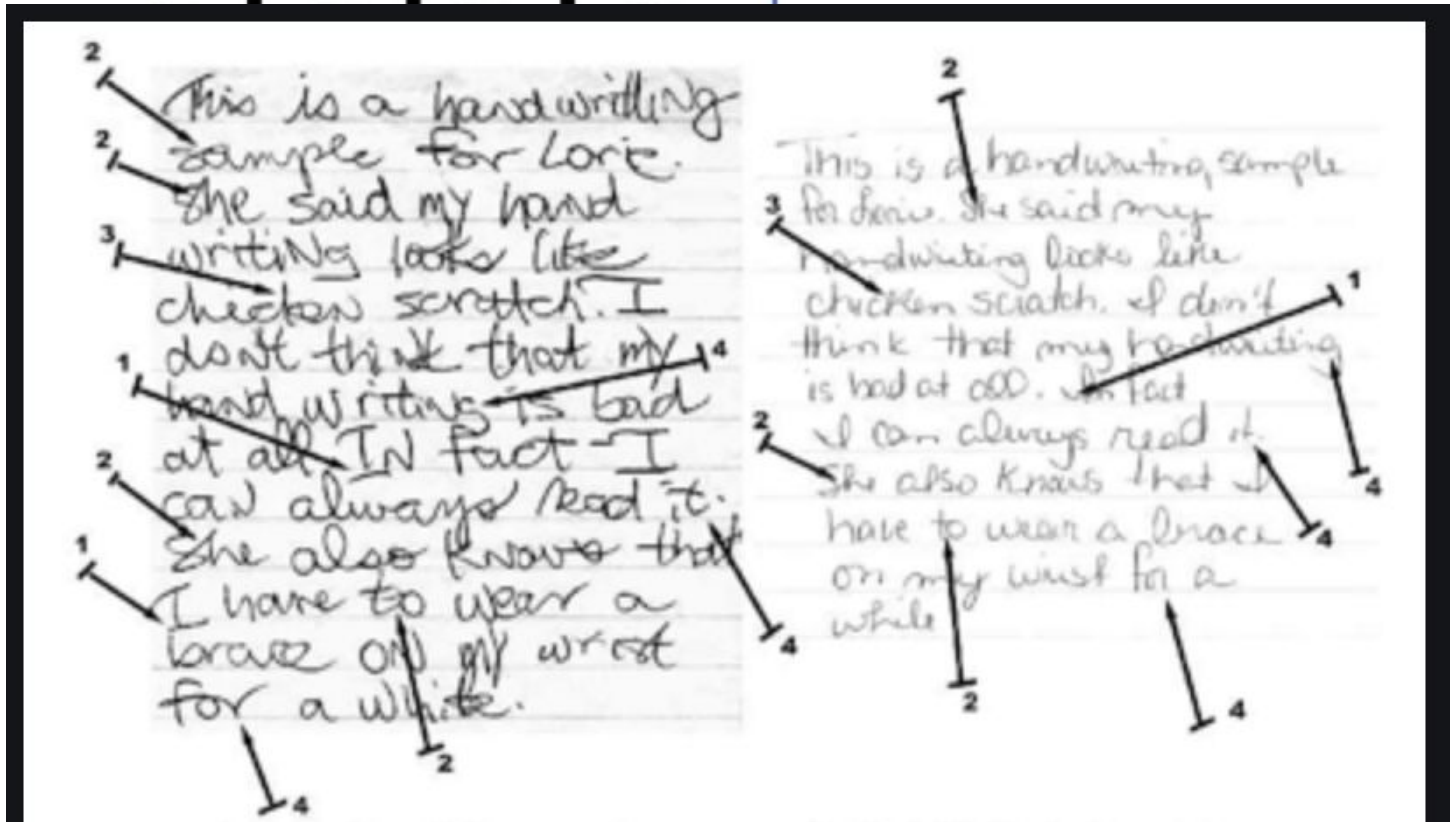 This is a handwritting
sample for Lorie.
She said my hand
writiNg looks like
chickeN scratch. I
don't think that my
hand writing is bad
at all. IN fact I
caN always read it.
She also knows that
I have to wear a
brace ON my wrist
for a while.
This is a handwriting sample
for Lorie. She said my
handwriting looks like
chicken scratch. I don't
think that my handwriting
is bad at all. In fact
I can always read it.
She also knows that I
have to wear a brace
on my wrist for a
while
2
2
3
1
4
2
1
4
2
4
2
3
1
2
4
4
2
4